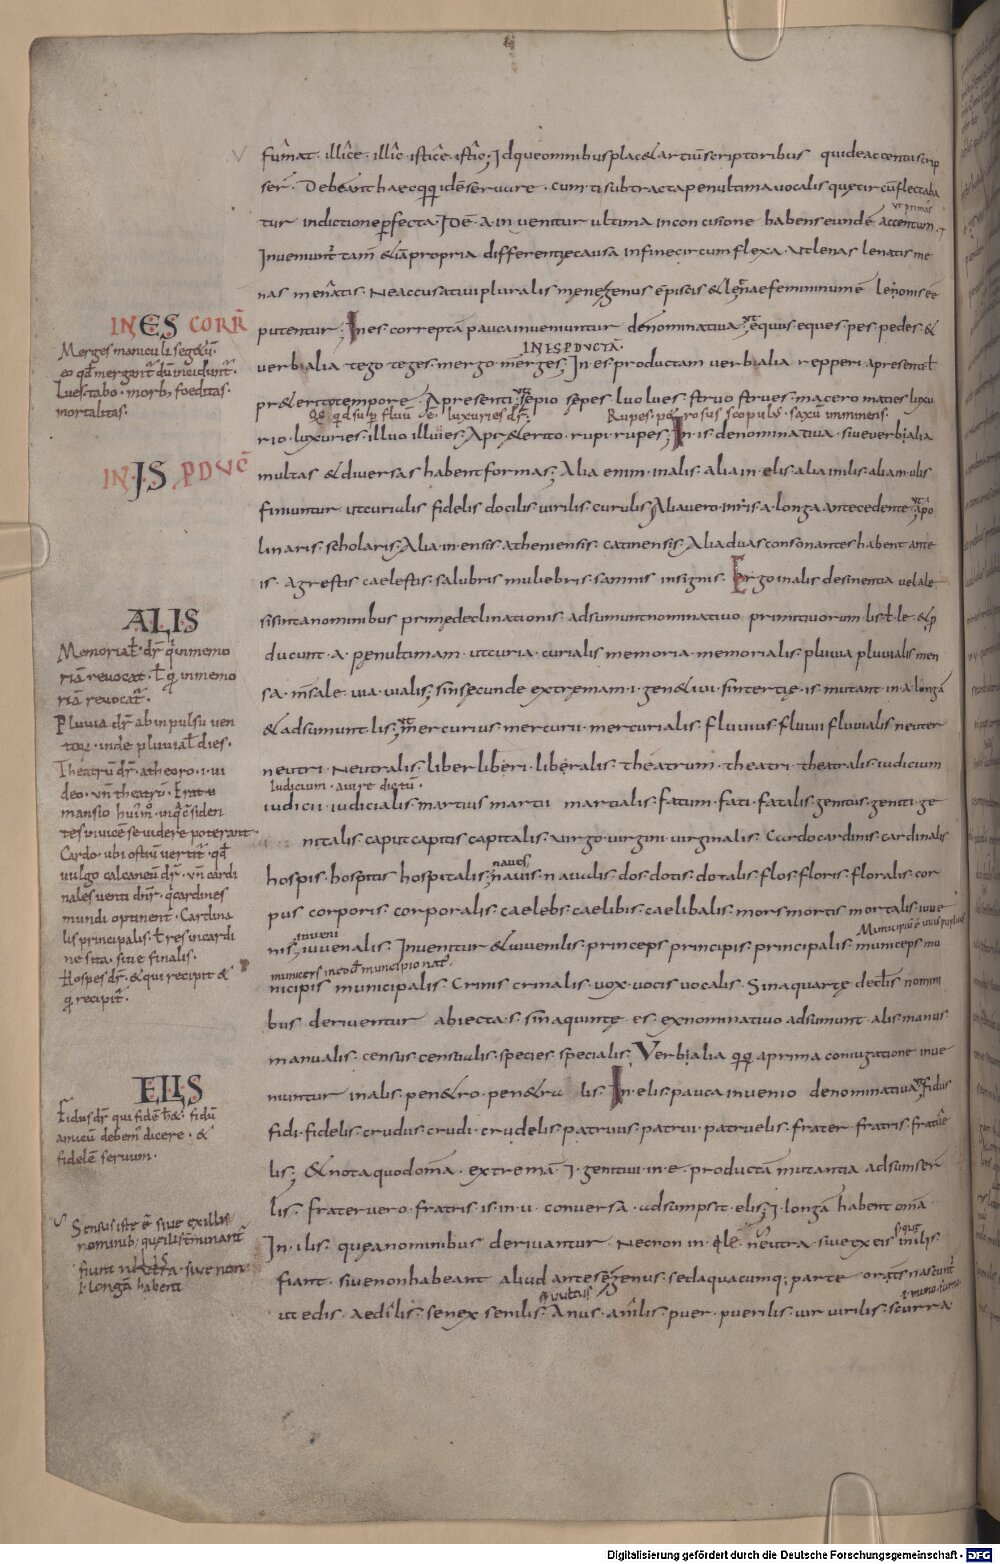 fumat. illice. illic. istice. istic; Idqueomnibusplac&artiu scriptoribus quideaccentuscrip
ser. Debeant haecqq idē seruare. cum ti subtracta penultima uocalis quę circuflectaba
ut primas
tur indictione perfecta. Idē. a. in uenitur ultima in concisione habens eundē accentum.
Inuenunt tam & iā propria differentię causa infine circumflexa. Vt lenas lenatis me
nas menatis. Ne accusatiui pluralis
putentur; In es correptā pauca inueniuntur denominatiua ut equus. eques. pes. pedes. &
IN ES PDUCTĀ.
uerbialia tego. teges. mergo. merges; In es. productam uerbialia repperi apresenti ł
pr&erito tempore. Apresenti. ut sepio sepes. luo lues. struo strues. macero macies luxu
Rupes. rosus scopulus. saxū imminens.
rio. luxuries. illuo illuuies. Apr&erito. rupi. rupes; In. is. denominatiua. siue uerbialia
multas & diuersas habent formas; Alia enim. in alis. alia in. elis. alia in ilis. alia in. ulis
finiuntur. ut curialis fidelis docilis. uirilis. curulis Alia uero. in ris. a. longa antecedente. ut apo
linaris. scholaris. Alia. in. ensis. atheniensis. catinensis. Alia duas consonantes habent ante
is. agrestis. caelestis. salubris muliebris. samnis insignis. Ergo in alis desinentia uel ale
si sint a nominibus primę declinationis. adsumunt nominatiuo primitiuorum. lis. ł. le. & p
ducunt. a. pęnultimam. ut curia. curialis memoria. memorialis. pluuia pluuialis men
sa. mensale. uia. uialis; sin secundę extremam. i. gen&iui. sin tertię. is mutant. in. a. longā
& adsumunt lis; ut mercurius. mercurii. mercurialis. fluuius. fluuii fluuialis neuter
neutri. Neutralis. liber liberi. liberalis. theatrum. theatri. theatralis. iudicium
Iudicium. a iure dictū.
iudicii. iudicialis. martius. martii martialis. fatum. fati. fatalis. genius. genii. ge
nitalis. caput capitis capitalis. uirgo uirgini. uirginalis. Cardo cardinis. cardinalis
naues
hospis. hospitis hospitalis; nauis. naualis. dos. dotis. dotalis. flos. floris. floralis. cor
pus corporis. corporalis. caelebs. caelibis. caelibalis. mors mortis mortalis. iuue
iuueni
nis. iuuenalis. Inuenitur & iuuenilis. princeps principis. principalis. municeps. mu
nicipis municipalis. Crinis crinalis. uox. uocis uocalis. Sin a quartę declis nomini
bus deriuentur abiecta. s. sin a quintę. es. ex nominatiuo adsumunt. alis. manus
manualis. census. censualis. species. specialis; Verbialia qq a prima coniugatione inue
niuntur in alis. pen&ro. pen&ralis. In. elis. pauca inuenio denominatiua ut fidus
fidi. fidelis. crudus. crudi. crudelis. patruus. patrui. patruelis. frater. fratris. fratue
lis; & nota quod omā. extremā. i. genitiui. in. e. productā mutantia adsumser
lis. frater uero. fratris. is. in. u. conuersa. adsumpsit. elis; I. longā habent omā
In. ilis. quę a nominibus deriuantur. Necnon in. ile. neutra. siue ex eis in ilis
fiant. siue non habeant aliud ante se genus. sed a quacumq; parte oratis nascunt
ut edis. aedilis. senex senilis. Anus. anilis. puer. puerilis. uir. uirilis. scurra
IN ES CORR
Merges maniculi seg&ū.
eo qd mergant dū inciduntr.
Lues. tabo. morbi foeditas.
mortalitas.
IN IS PDUC
ALIS
Memorial dr. qui in memo
riā reuocat. ł qui in memo
riā reuocatr.
Pluuia dr. ab inpulsu uen
tor. inde pluuial dies.
Theatrū dr. a theoro. i. ui
deo. un theatri. Erat
mansio
tes inuicē se uidere poterant.
Cardo. ubi ostiū uertitr. qd
uulgo calcaneū dr. un cardi
nales uenti dnr. qi cardines
mundi optinent. Cardina
lis principalis. ł res in cardi
ne sita. siue finalis.
Hospes dr. & qui recipit &
qi recipitr.
ELIS
Fidus dr. qui fidē hab&. fidū
amicū debem dicere. &
fidelē seruum.
Sensus iste ē siue ex illis
nominib.
fiunt neutra. siue non
i. longā habent
Digitalisierung gefördert durch die Deutsche Forschungsgemeinschaft - DFG